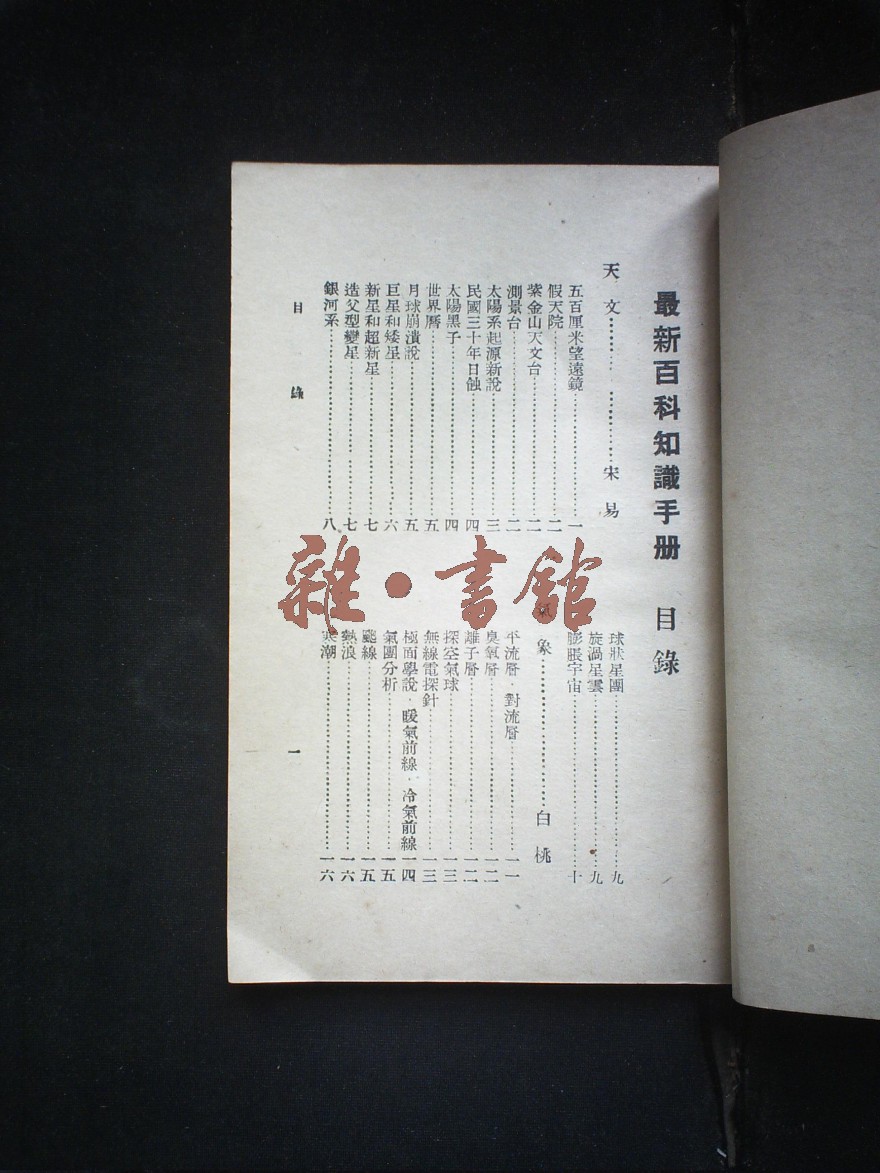 最新百科知識手册 目錄
天文……………宋易
五百厘米望遠鏡……一
假天院……二
紫金山天文台……二
測景台……二
太陽系起源新說……三
民國三十年日蝕……四
太陽黑子……四
世界曆……五
月球崩潰說……五
巨星和矮星……六
新星和超新星……七
造父型變星……七
銀河系……八
球狀星團……九
旋渦星雲……九
膨脹宇宙……十
氣象……………白桃
平流層·對流層……一一
臭氧層……一二
離子層……一二
探空氣球……一三
無線電探針……一三
極面學說·暖氣前線·冷氣前線一四
氣團分析……一五
颮線……一五
熱浪……一六
寒潮……一六
目錄
一
雜·書館